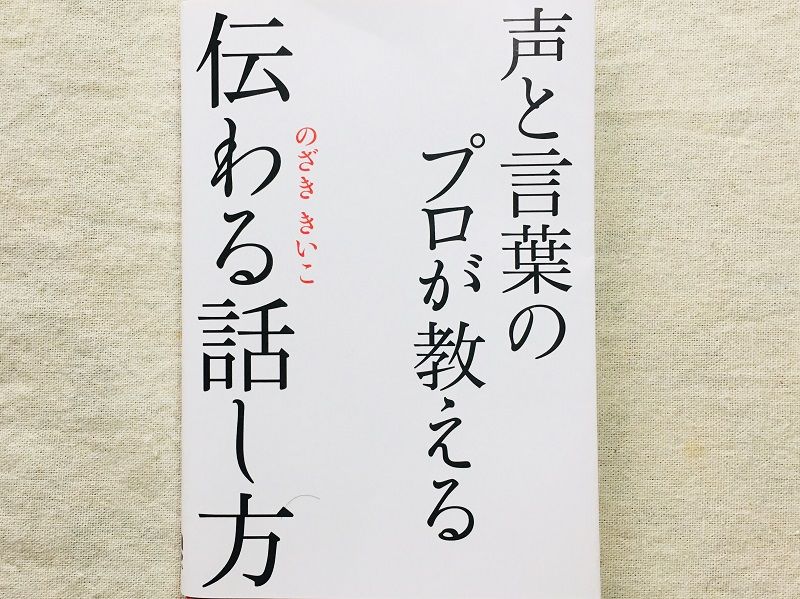 声と言葉の
プロが教える
のざき きいこ
伝わる話し方